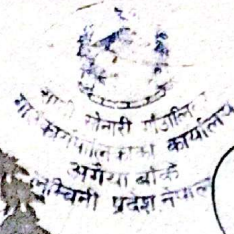 राप्ती सोनारी गाँउपालिका
गाउँ कार्यपालिकाको कार्यालय
अगैया बाँके
लुम्बिनी प्रदेश, नेपाल